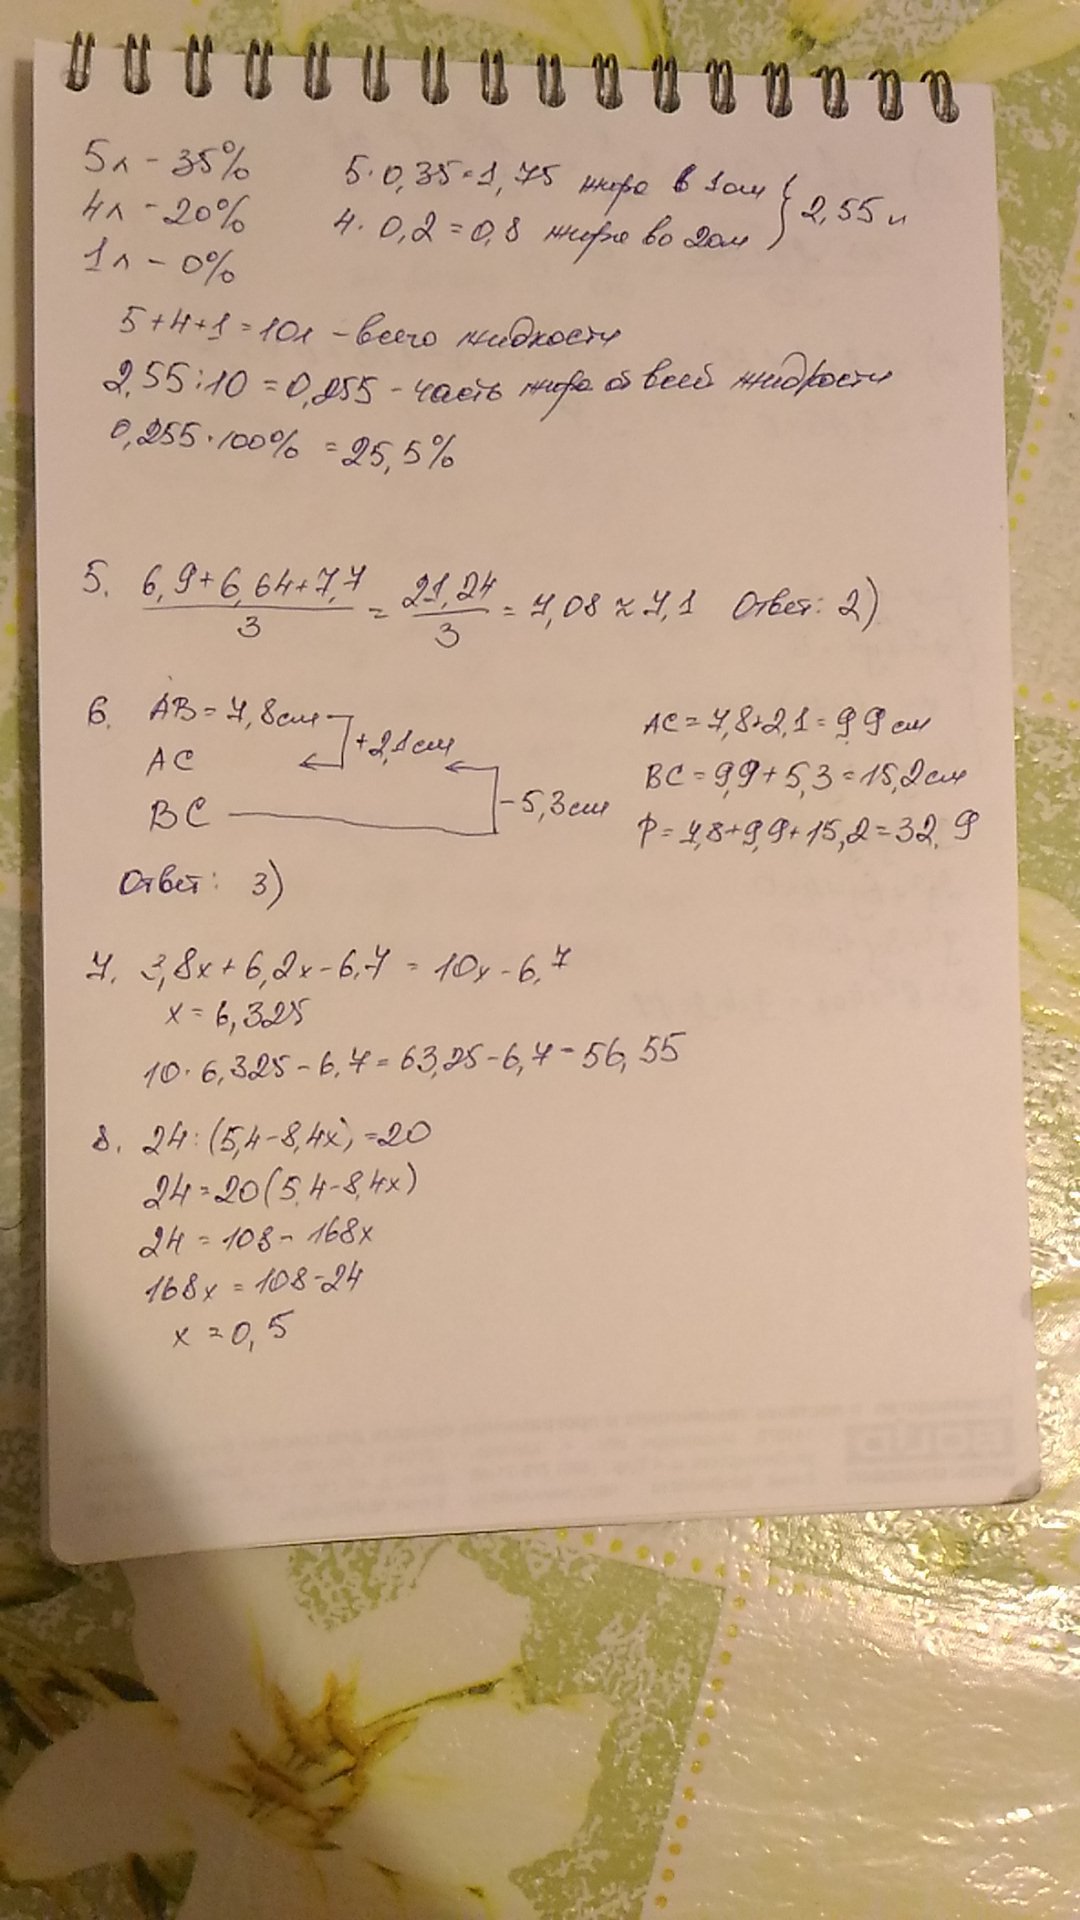 5л - 35% 5·0,35=1,75 жира в 1ом } 2,55 л
4л - 20% 4·0,2=0,8 жира во 2ом
1л - 0%
5+4+1=10л - всего жидкости
2,55:10=0,255 - часть жира от всей жидкости
0,255·100% = 25,5%
5. (6,9+6,64+7,7)/3 = 21,24/3 = 7,08 ≈ 7,1 Ответ: 2)
6. AB = 7,8см AC = 7,8+2,1 = 9,9 см
+2,1см
AC BC = 9,9+5,3 = 15,2 см
BC - 5,3см P = 7,8+9,9+15,2 = 32,9
Ответ: 3)
7. 3,8x + 6,2x - 6,7 = 10x - 6,7
x = 6,325
10·6,325 - 6,7 = 63,25 - 6,7 = 56,55
8. 24:(5,4-8,4x) = 20
24 = 20(5,4-8,4x)
24 = 108 - 168x
168x = 108-24
x = 0,5